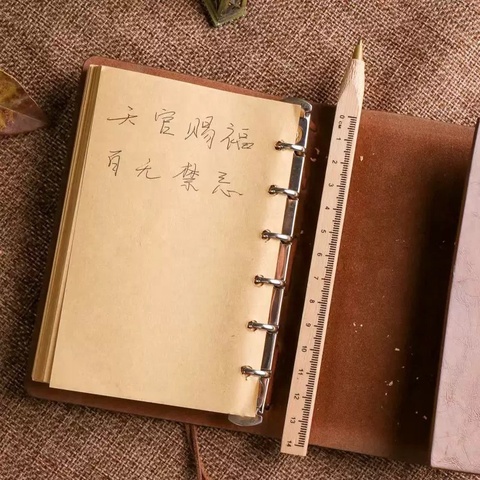 天官赐福
百无禁忌
0 cm 1 2 3 4 5 6 7 8 9 10 11 12 13 14